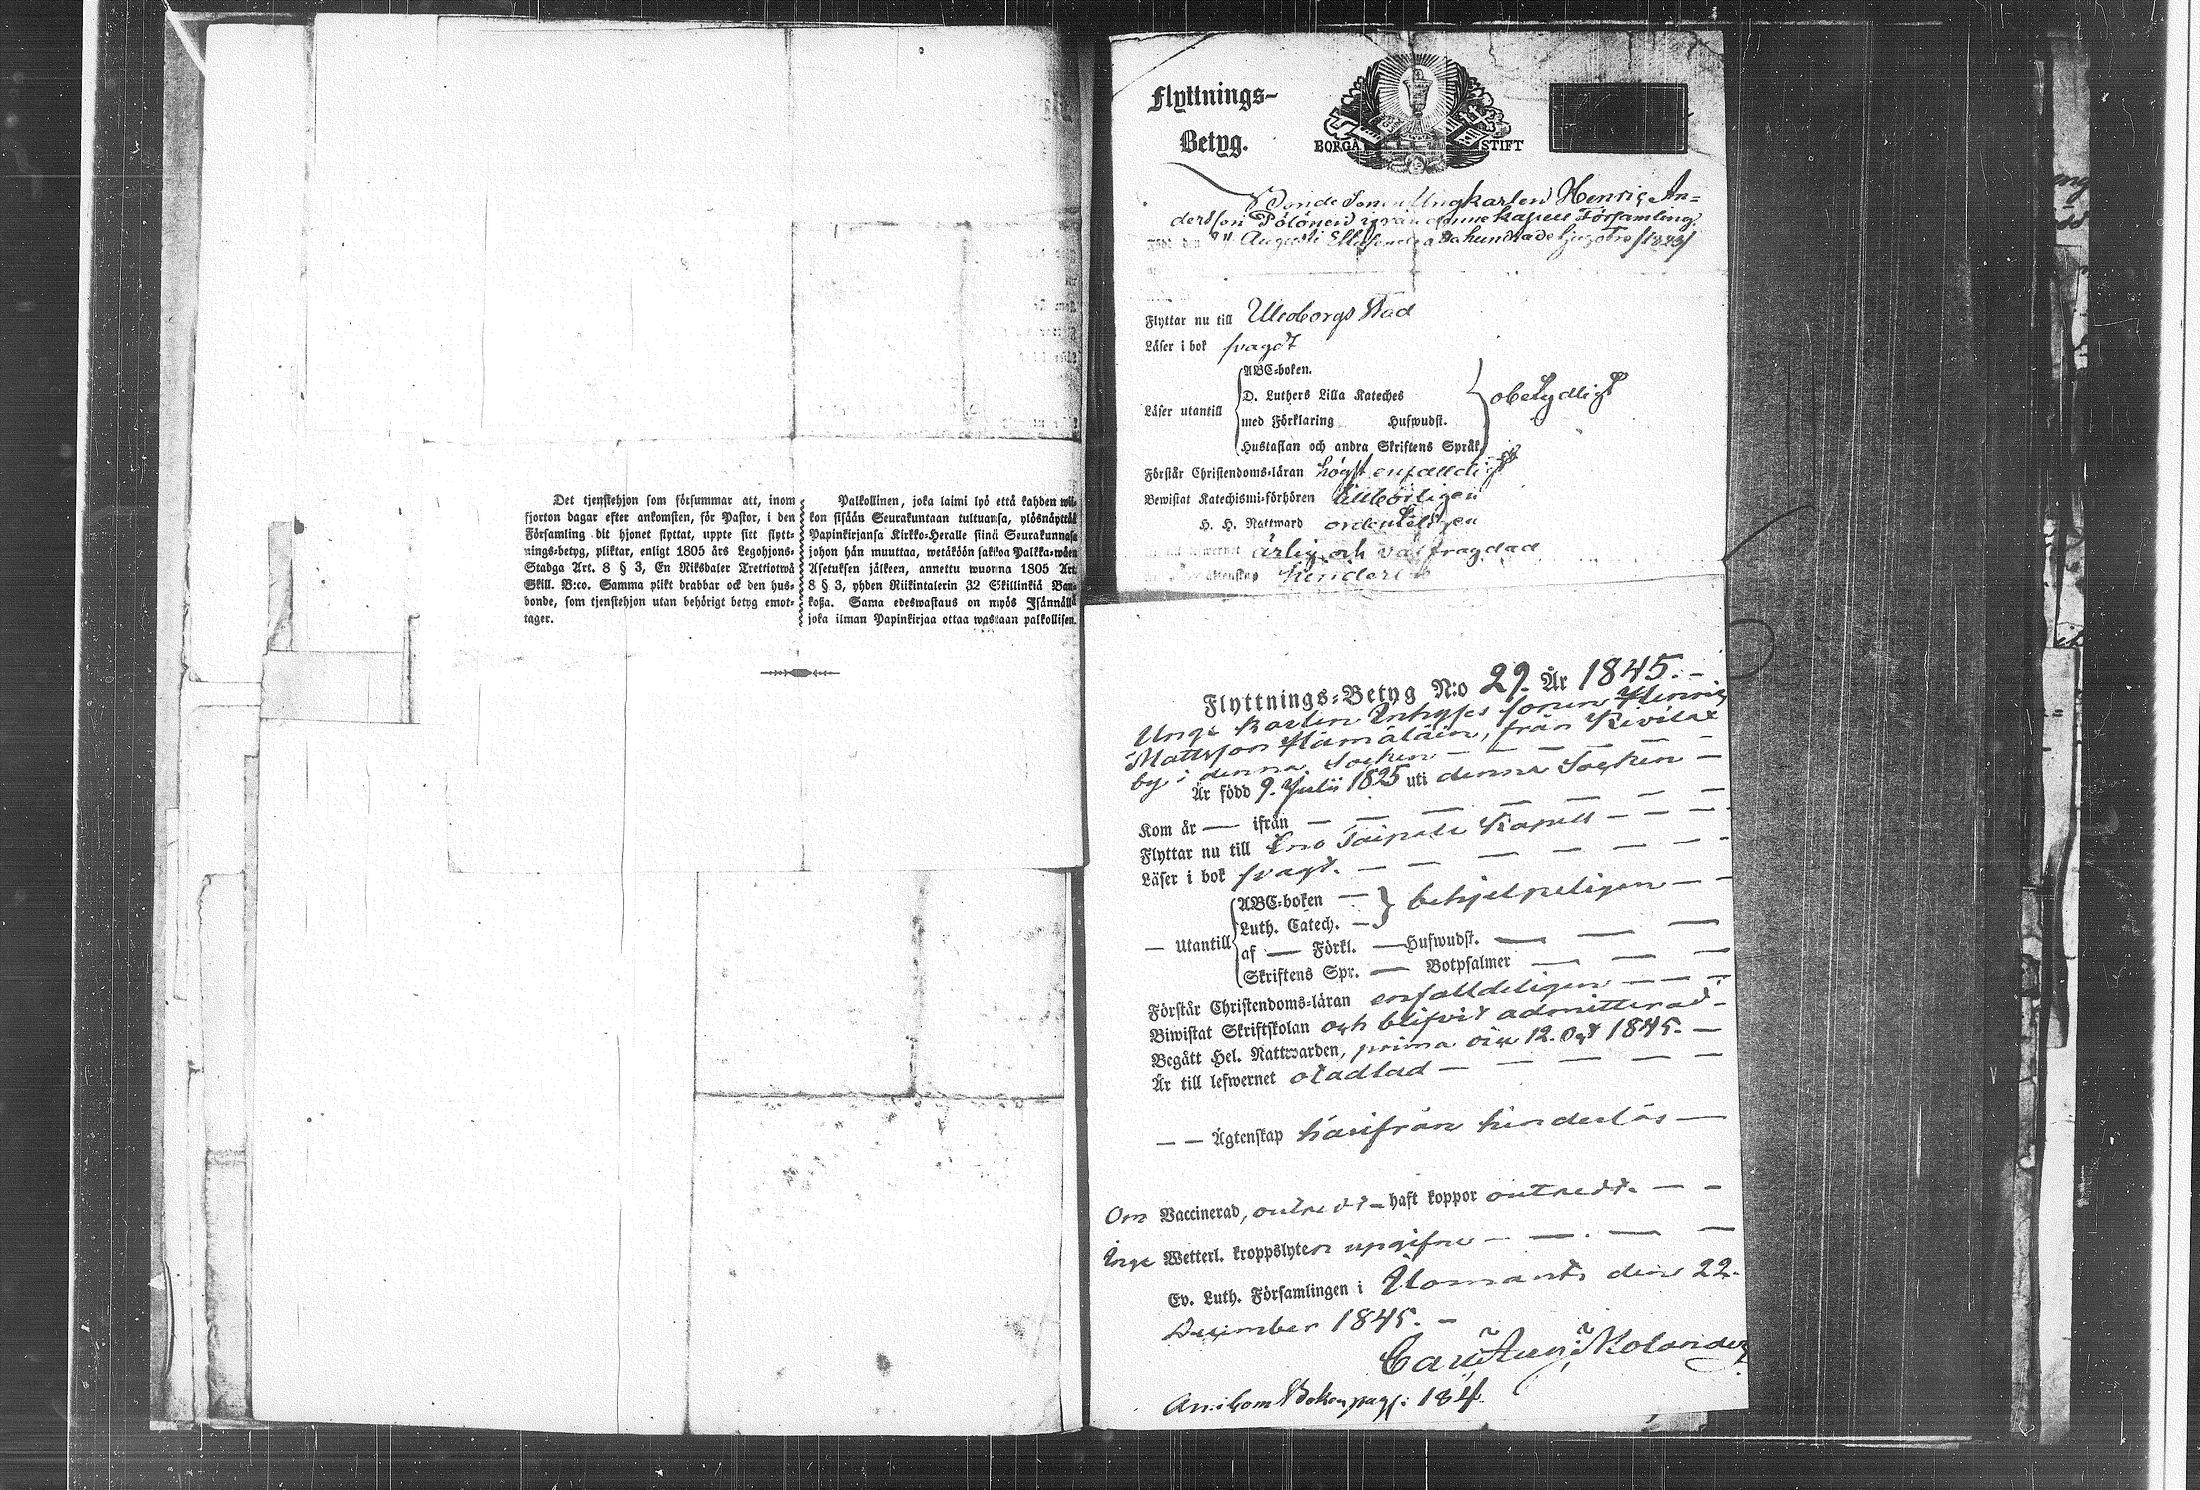 Det tjenstehjon som försummar att, inom
fjorton dagar efter ankomsten, för Pastor, i den
Församling dit hjonet flyttat, uppte sitt flytt-
nings-betyg, pliktar, enligt 1805 års Legohjons-
Stadga Art. 8 § 3, En Riksdaler Trettiotwå
Skill. B:co. Samma plikt drabbar ock den hus-
bonde, som tjenstehjon utan behörigt betyg emot-
tager.
Palkollinen, joka laimi lyö että kahden wii-
kon sisään Seurakuntaan tultuansa, ylösnäyttää
Papinkirjansa Kirkko-Heralle siinä Seurakunnasa
johon hän muuttaa, wetäköön sakkoa Palkka-wäen
Asetuksen jälkeen, annettu wuonna 1805 Art.
8 § 3, yhden Riikintalerin 32 Skillinkiä Ban-
koßa. Sama edeswastaus on myös Isännällä
joka ilman Papinkirjaa ottaa wastaan palkollisen.
Flyttnings-
Betyg.
BORGÅ STIFT
Bonde Sonen Ungkarlen Henric An=
dersson Pölönen ifrån denne kapell Församling
Född den Augusti Ettusende ada hundrade tjugotre /1823/
Flyttar nu till Uleoborgs Stad
Läser i bok svagdt
Läser utantill
ABC-boken.
D. Luthers Lilla Kateches
med Förklaring Hufwudst.
Hustaflan och andra Skriftens Språk
obetydligt
Förstår Christendoms-läran högst enfalldigt
Bewistat Katechismi-förhören Tillbörligen
H. H. Nattward ordenteligen
lefwernet ärlig och välfrägdad
Flyttnings-Betyg N:o 29. År 1845.-
Unge Karlen Inhyses sonen Henric
Mattsson Hämäläin, från Kivilax
by i denna Socken -
Är född 9. Julii 1825 uti denna Socken -
Kom år — ifrån —
Flyttar nu till Eno Taipale Kapell - -
Läser i bok svagt. -
— Utantill
ABC-boken —
Luth. Catech. —
behjelpeligen - -
af — Förkl. — Hufwudst. —
Skriftens Spr. — Botpsalmer —
Förstår Christendoms-läran enfalldeligen - -
Biwistat Skriftskolan och blifvit admitterad -
Begått Hel. Nattwarden, prima vice 12. Oct 1845. -
Är till lefwernet otadlad -
— — Ägtenskap härifrån hinderlös —
Om Vaccinerad, outredt - haft koppor outredt. - -
Inge Wetterl. kroppslyten uppgifne -
Ev. Luth. Församlingen i Ilomants den 22.
December 1845. -
Molander
Boken pag: 184.